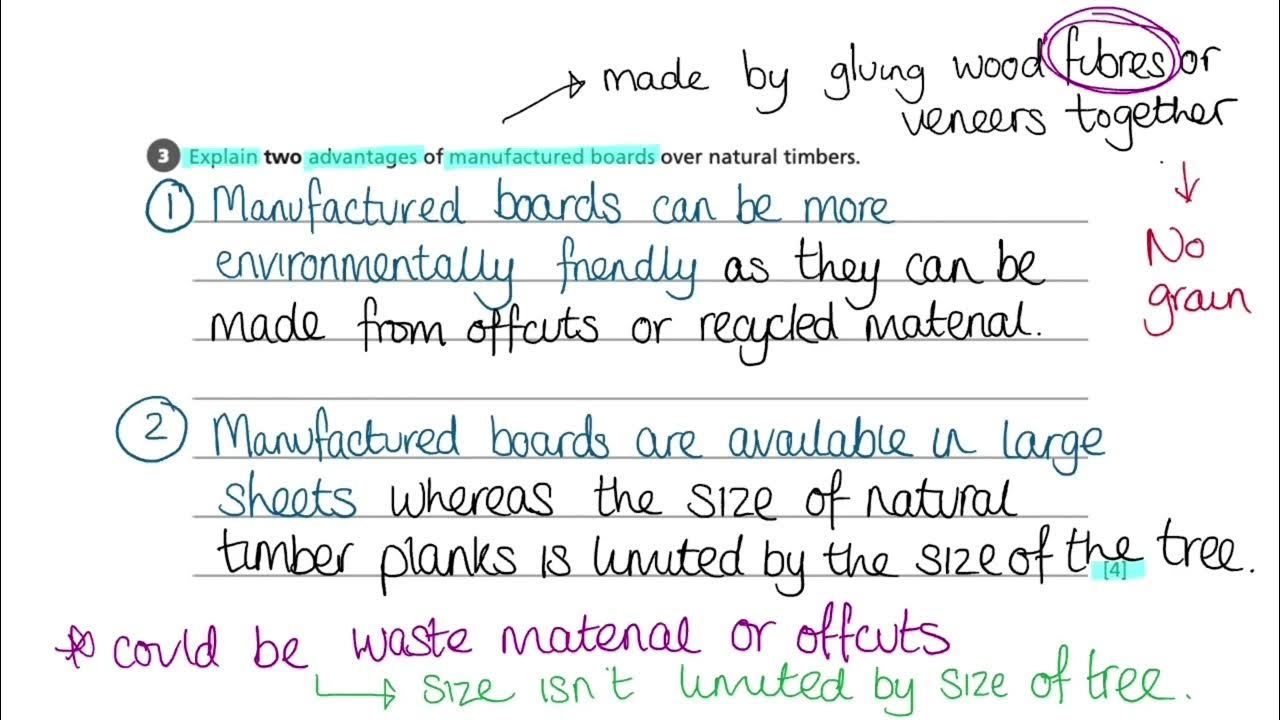 made by gluing wood fibres or
veneers together
3 Explain two advantages of manufactured boards over natural timbers.
1 Manufactured boards can be more
environmentally friendly as they can be
made from offcuts or recycled material.
No
grain
2 Manufactured boards are available in large
sheets whereas the size of natural
timber planks is limited by the size of the tree.
[4]
* could be waste material or offcuts
size isn't limited by size of tree.